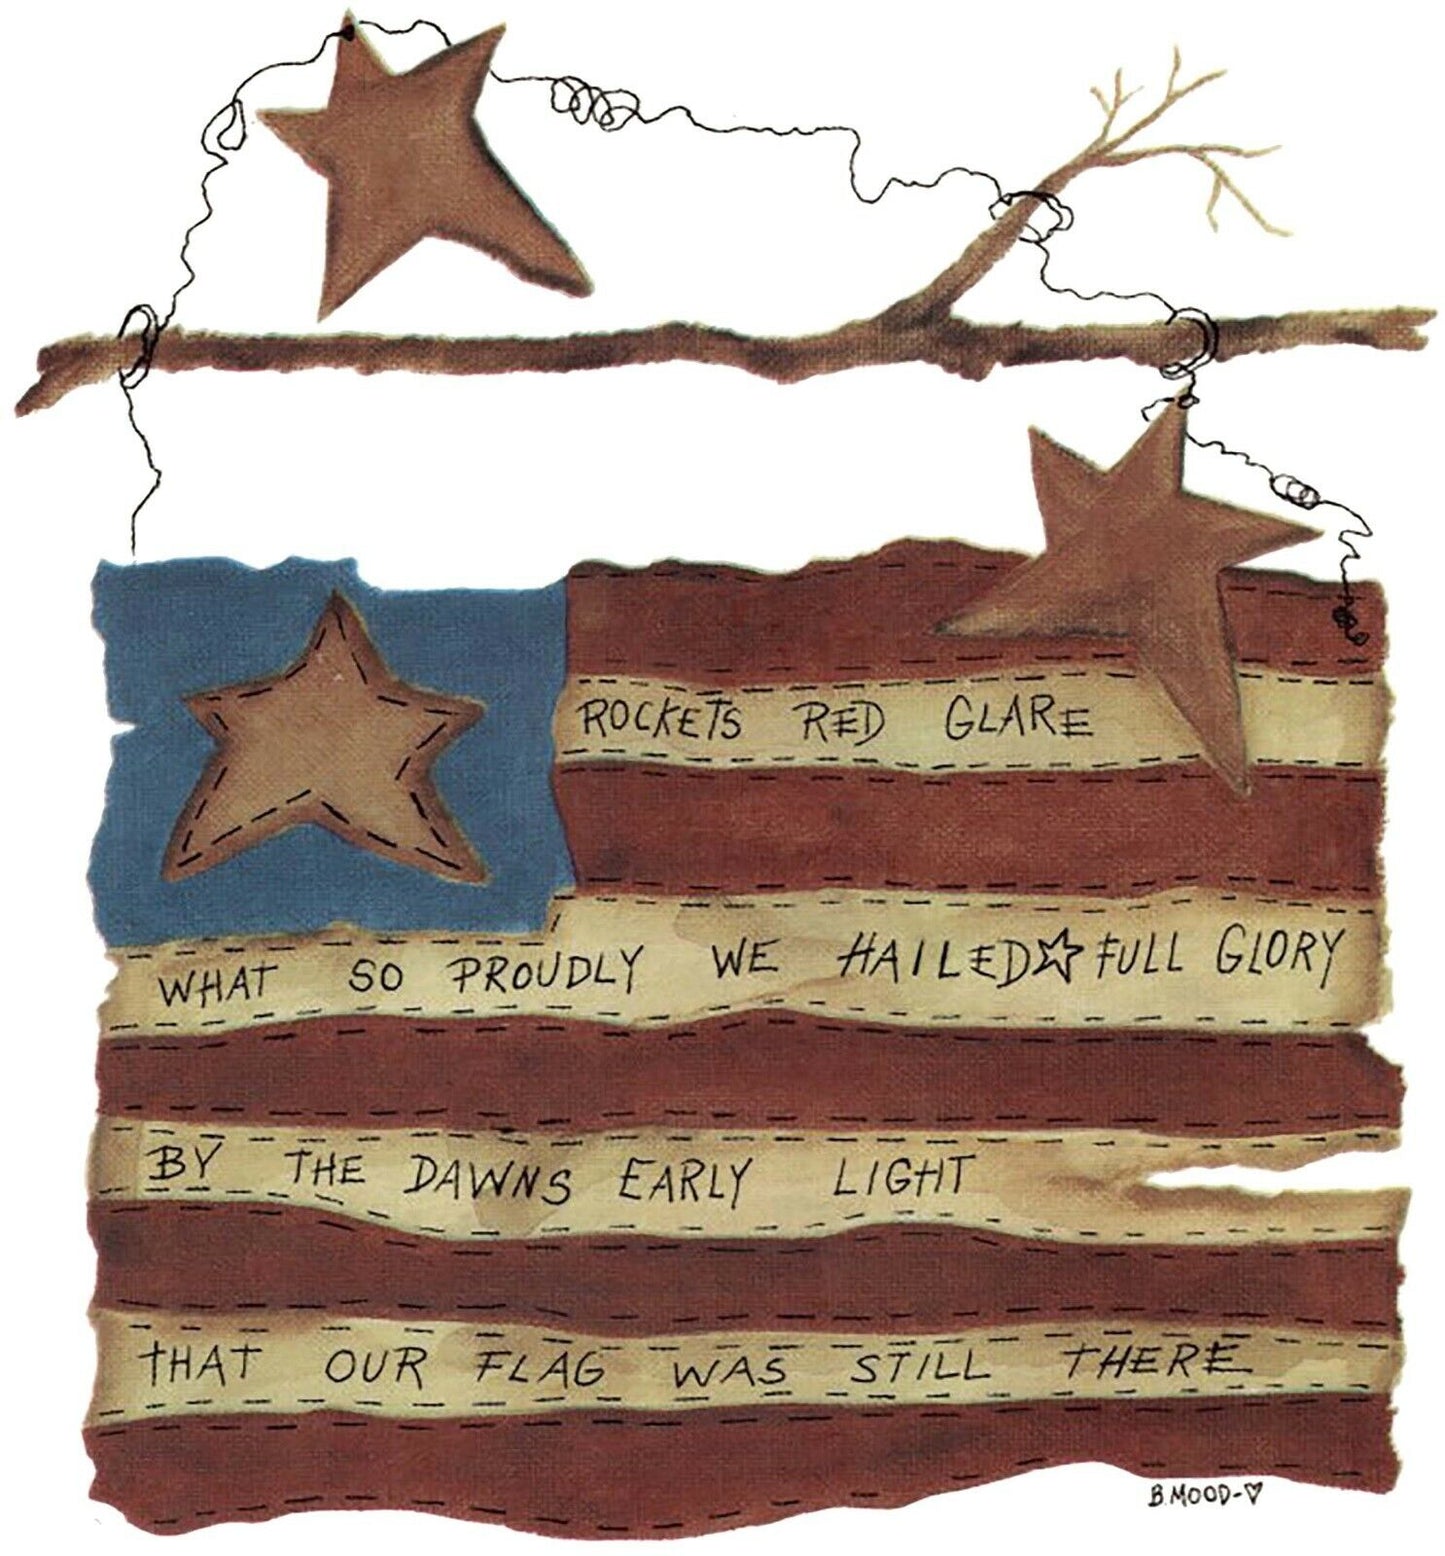 ROCKETS RED GLARE
WHAT SO PROUDLY WE HAILED☆FULL GLORY
BY THE DAWNS EARLY LIGHT
THAT OUR FLAG WAS STILL THERE
B.MOOD-♡